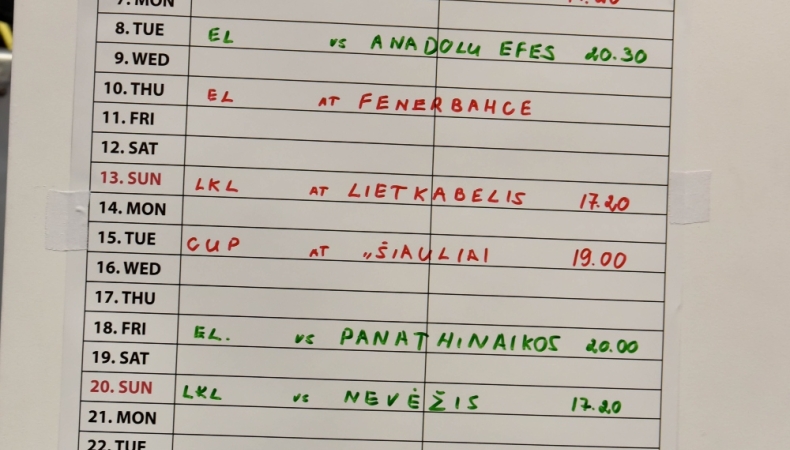 7. MON
8. TUE EL vs ANADOLU EFES 20.30
9. WED
10. THU EL AT FENERBAHCE
11. FRI
12. SAT
13. SUN LKL AT LIETKABELIS 17.20
14. MON
15. TUE CUP AT „ŠIAULIAI 19.00
16. WED
17. THU
18. FRI EL. vs PANATHINAIKOS 20.00
19. SAT
20. SUN LKL vs NEVĖŽIS 17.20
21. MON
22. TUE